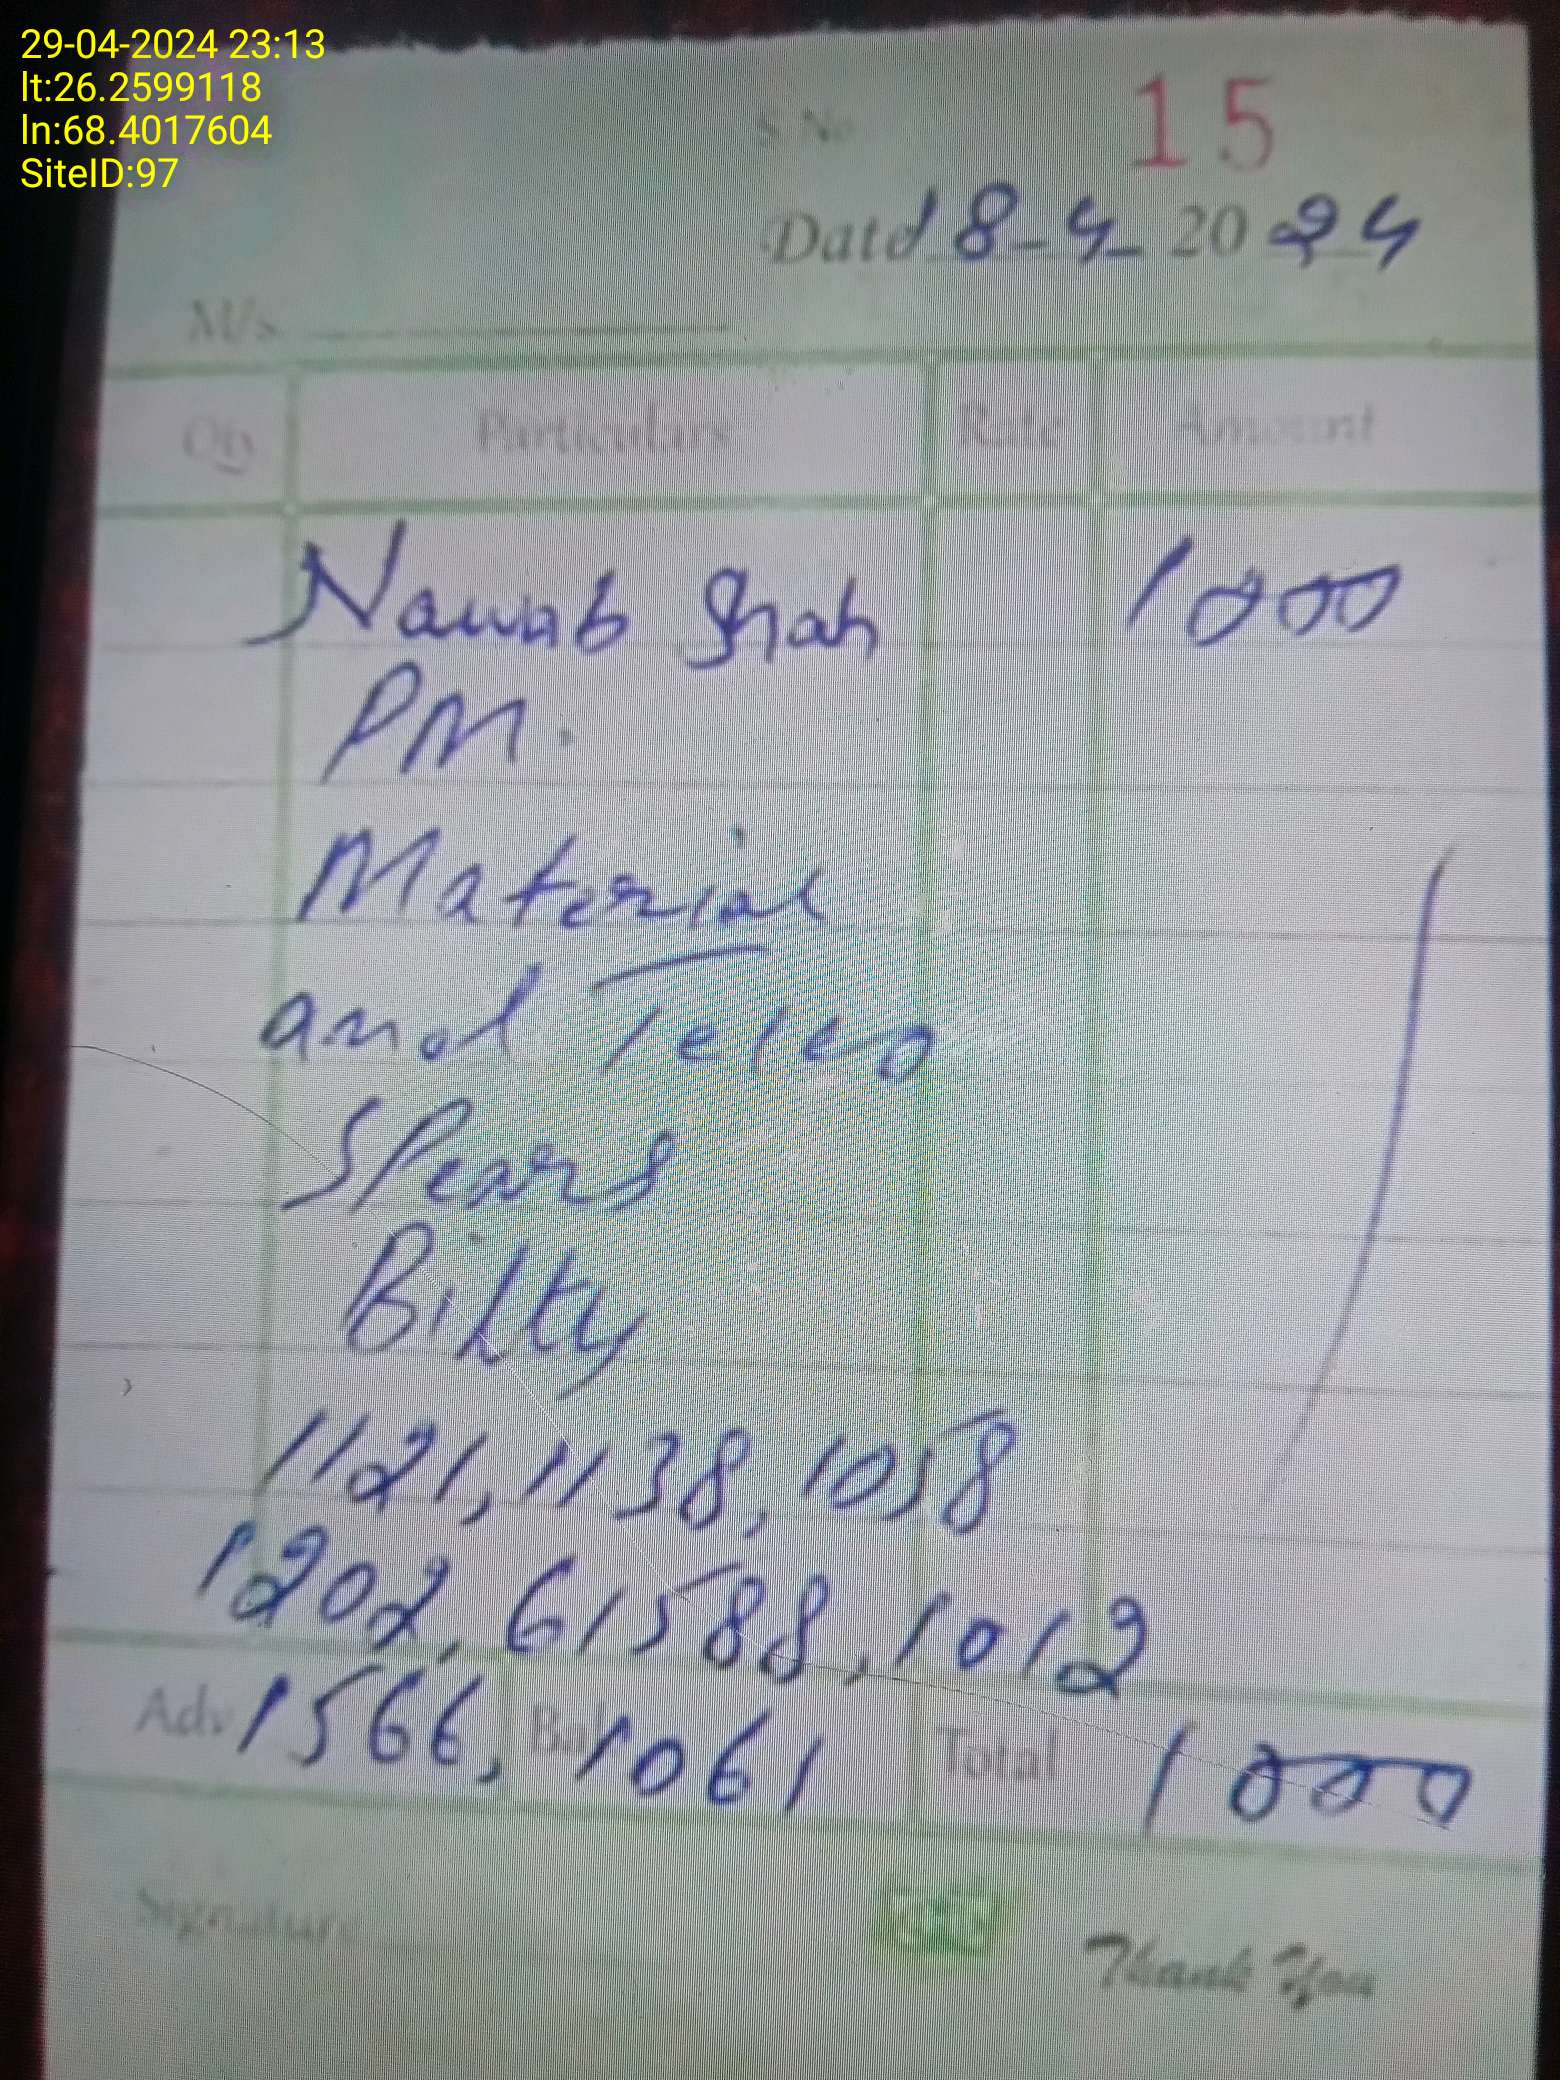 29-04-2024 23:13
lt:26.2599118
ln:68.4017604
SiteID:97
S.No 15
Date 18-4-2024
M/s
Qty Particulars Rate Amount
Nawab Shah 1000
PM.
Material
and Telco
SPears
Bilty
1121, 1138, 1058
1202, 61588, 1012
1566, 1061
Adv Bal Total 1000
Signature
Thank You